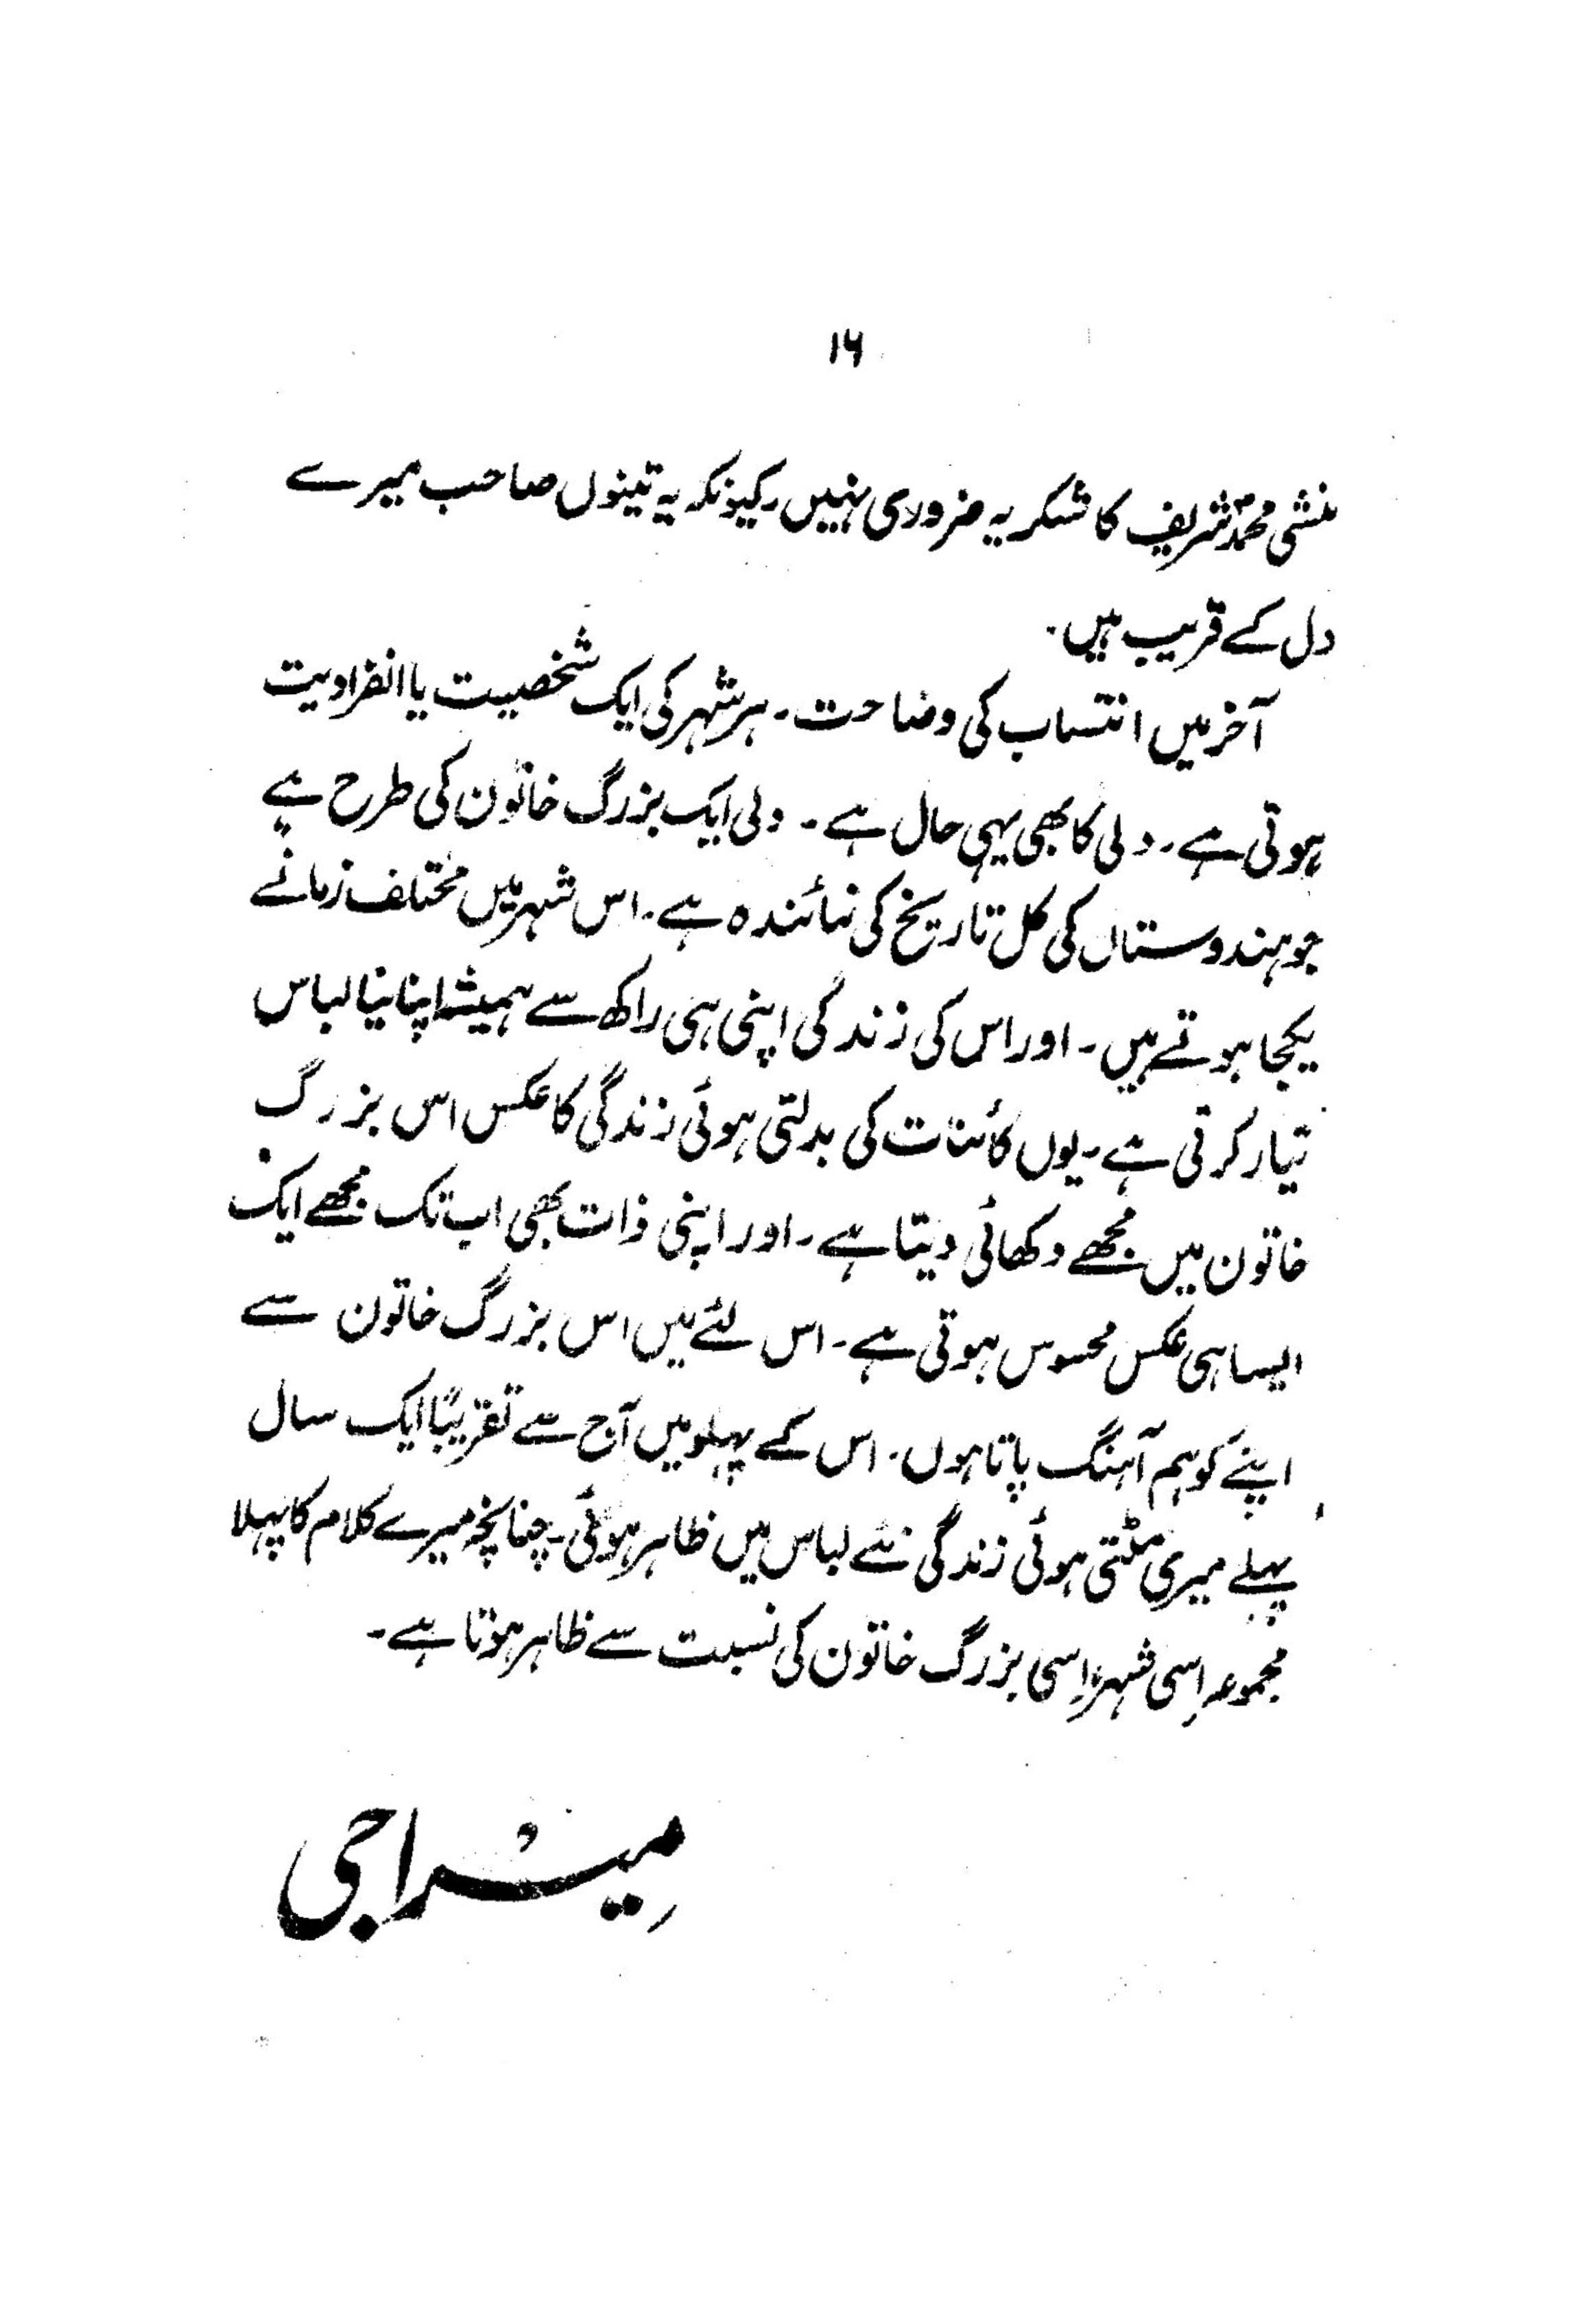 ۱۶
منشی محمد شریف کا شکریہ ضروری نہیں۔ کیونکہ یہ تینوں صاحب میرے
دل کے قریب ہیں۔
آخر میں انتساب کی وضاحت۔ ہر شہر کی ایک شخصیت یا انفرادیت
ہوتی ہے۔ دلی کا بھی یہی حال ہے۔ دلی ایک بزرگ خاتون کی طرح ہے
جو ہندوستاں کی کل تاریخ کی نمائندہ ہے۔ اس شہر میں مختلف زمانے
یکجا ہوتے ہیں۔ اور اس کی زندگی اپنی ہی راکھ سے ہمیشہ اپنا نیا لباس
تیار کرتی ہے۔ یوں کائنات کی بدلتی ہوئی زندگی کا عکس اس بزرگ
خاتون میں مجھے دکھائی دیتا ہے۔ اور اپنی ذات بھی اب تک مجھے ایک
ایسا ہی عکس محسوس ہوتی ہے۔ اس لئے میں اس بزرگ خاتون سے
اپنے کو ہم آہنگ پاتا ہوں۔ اس کے پہلو میں آج سے تقریباً ایک سال
پہلے میری مٹتی ہوئی زندگی نئے لباس میں ظاہر ہوئی۔ چنانچہ میرے کلام کا پہلا
مجموعہ اِسی شہر، اِسی بزرگ خاتون کی نسبت سے ظاہر ہوتا ہے۔
میراجی